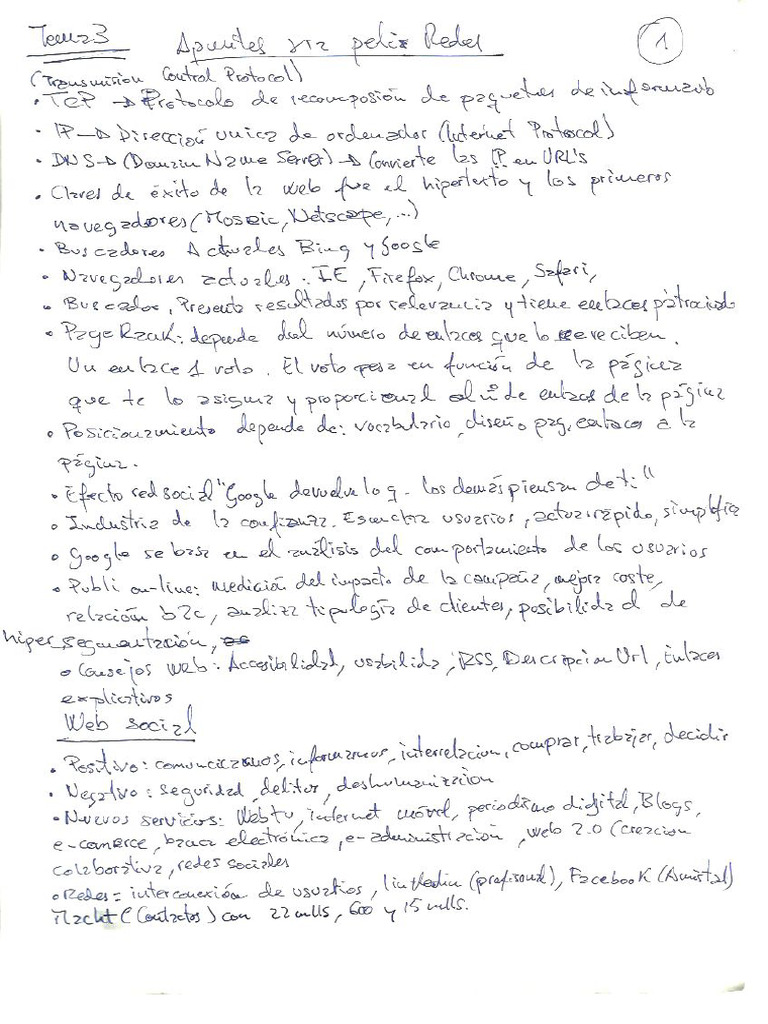 Tema 3 Apuntes via peli Redes 1
(Transmision Control Protocol)
• TCP → Protocolo de recomposión de paquetes de información
• IP → Dirección única de ordenador (Internet Protocol)
• DNS → (Domain Name Server) → Convierte las IP en URL's
• Claves de éxito de la web fue el hipertexto y los primeros
navegadores (Mosaic, Netscape, ...)
• Buscadores Actuales Bing y Google
• Navegadores actuales: IE, Firefox, Chrome, Safari,
• Buscador, Presenta resultados por relevancia y tiene enlaces patrocinado
• Page Rank: depende del número de enlaces que lo reciben.
Un enlace 1 voto. El voto pesa en función de la página
que te lo asigna y proporcional al nº de enlaces de la página
• Posicionamiento depende de: vocabulario, diseño pag, enlaces a la
página.
• Efecto red social "Google devuelve lo q. los demás piensan de ti"
• Industria de la confianza. Escucha usuarios, actua rápido, simplifica
• Google se basa en el análisis del comportamiento de los usuarios
• Publi on-line: medición del impacto de la campaña, mejora coste,
relación b2c, analiza tipología de clientes, posibilidad de
hiper segmentación,
• Consejos web: Accesibilidad, usabilida, RSS, Descripcion Url, Enlaces
explicativos
Web social
• Positivo: comunicarnos, informarnos, interrelacion, comprar, trabajar, decidir
• Negativo: seguridad, delitos, deshumanizacion
• Nuevos servicios: Webtv, internet móvil, periodismo digital, Blogs,
e-comerce, banca electrónica, e-administración, web 2.0 (creacion
colaborativa, redes sociales
• Redes = interconexión de usuarios, linkedin (profisonal), Facebook (Amistad)
(Contactos) con 22 mlls, 600 y 15 mlls.